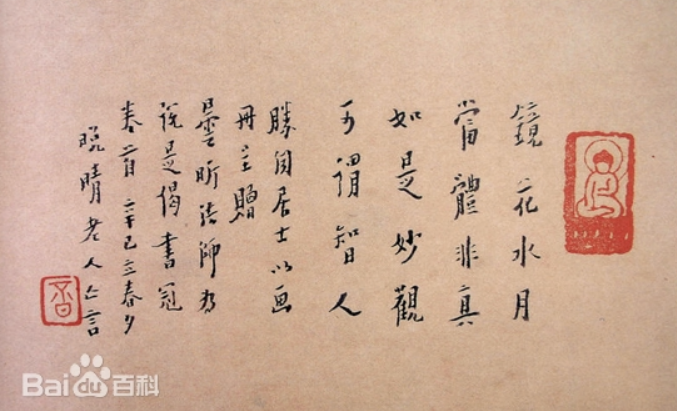 鏡花水月
當體非真
如是妙觀
可謂智人
勝閏居士以画
冊呈贈
曇昕法師為
說是偈書冠
卷首 辛巳立春夕
晚晴老人亡言
Baidu百科